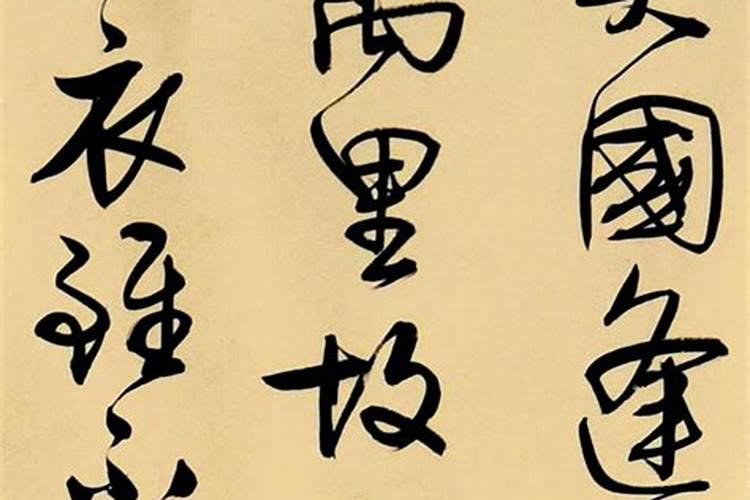 國逢
萬里故
衣雖